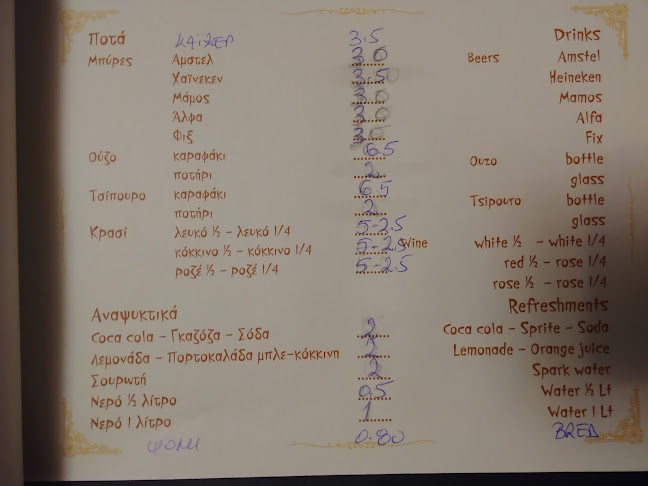 Ποτά ΚΑΪΖΕΡ 3.5 Drinks
Μπύρες Άμστελ 30 Beers Amstel
Χαϊνεκεν 3.5 Heineken
Μάμος 30 Mamos
Άλφα 30 Alfa
Φιξ 30 Fix
Ούζο καραφάκι 6.5 Ouzo bottle
ποτήρι 2 glass
Τσίπουρο καραφάκι 6.5 Tsipouro bottle
ποτήρι 2 glass
Κρασί λευκό ½ – λευκό 1/4 5-2.5 Wine white ½ – white 1/4
κόκκινο ½ – κόκκινο 1/4 5-2.5 red ½ – rose 1/4
ροζέ ½ – ροζέ 1/4 5-2.5 rose ½ – rose 1/4
Αναψυκτικά Refreshments
Coca cola – Γκαζόζα – Σόδα 2 Coca cola – Sprite – Soda
Λεμονάδα – Πορτοκαλάδα μπλε-κόκκινη 2 Lemonade – Orange juice
Σουρωτή 2 Spark water
Νερό ½ λίτρο 0.5 Water ½ Lt
Νερό 1 λίτρο 1 Water 1 Lt
ΨΩΜΙ 0.80 BREΔ